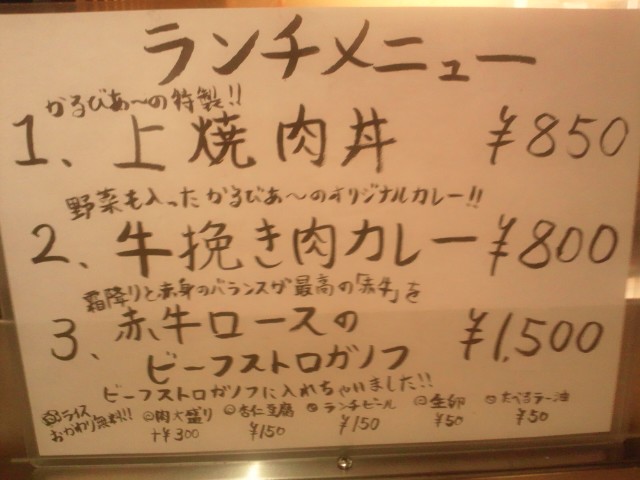 ランチメニュー
かるびあ〜の特製!!
1、上焼肉丼 ¥850
野菜も入ったかるびあ〜のオリジナルカレー!!
2、牛挽き肉カレー ¥800
霜降りと赤身のバランスが最高の「赤牛」を
3、赤牛ロースの
ビーフストロガノフ ¥1,500
ビーフストロガノフに入れちゃいました!!
ライス
おかわり無料!!
肉大盛り
+¥300
杏仁豆腐
¥150
ランチビール
¥150
生卵
¥50
たべるラー油
¥50